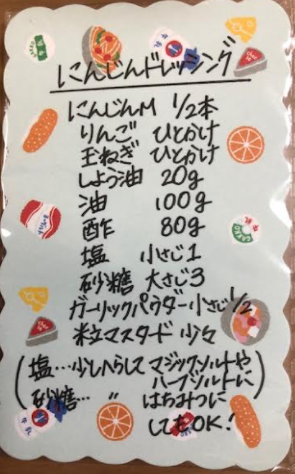 にんじんドレッシング
にんじんM 1/2本
りんご ひとかけ
玉ねぎ ひとかけ
しょう油 20g
油 100g
酢 80g
塩 小さじ1
砂糖 大さじ3
ガーリックパウダー小さじ1/2
粒マスタード 少々
(塩…少しへらして マジックソルトや
ハーブソルトに
砂糖… 〃 はちみつに
してもOK!)